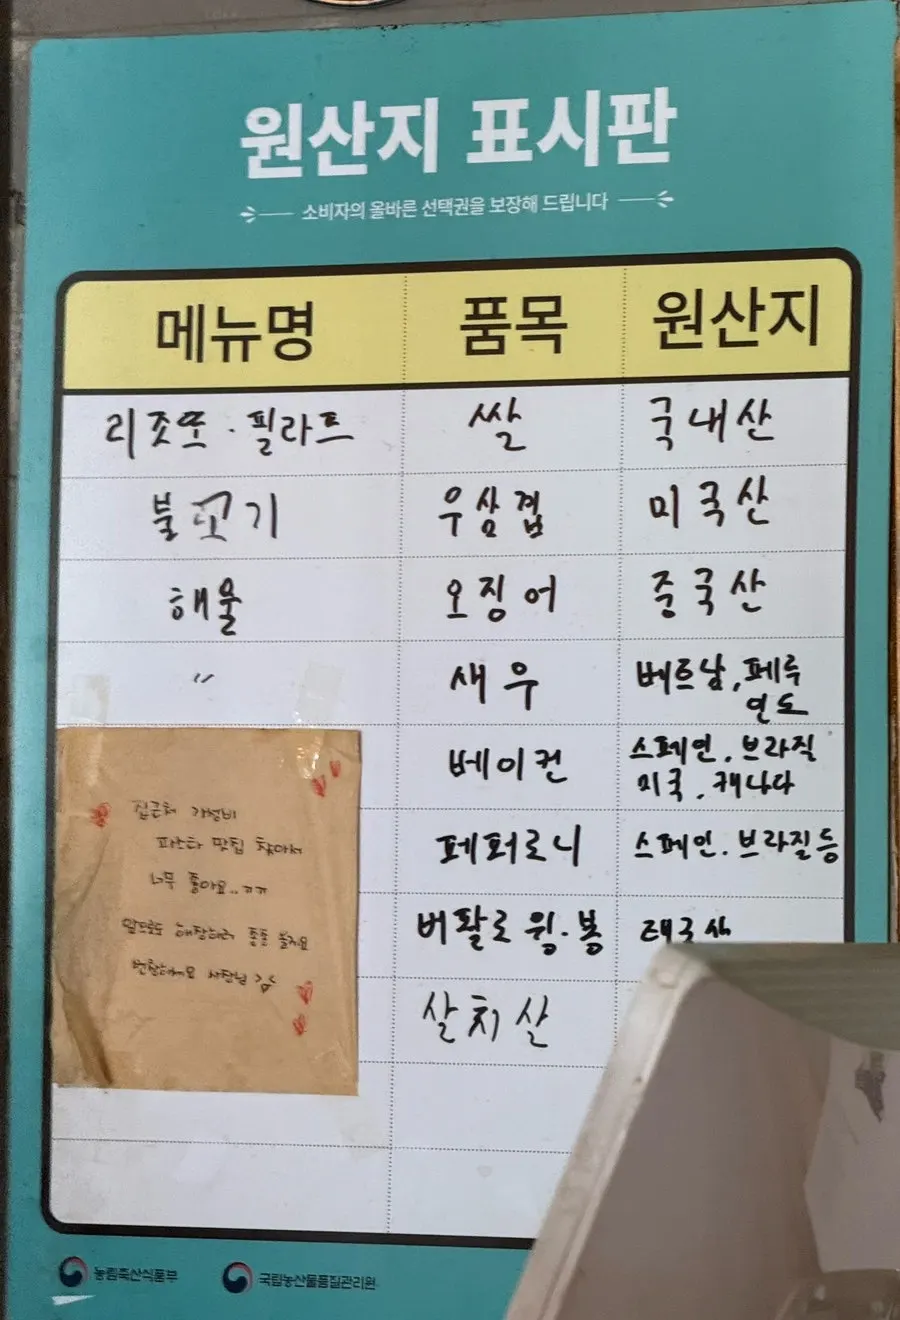 원산지 표시판
소비자의 올바른 선택권을 보장해 드립니다
메뉴명 품목 원산지
리조또 · 필라프 쌀 국내산
불고기 우삼겹 미국산
해물 오징어 중국산
〃 새우 베트남, 페루
인도
베이컨 스페인, 브라질
미국, 캐나다
페퍼로니 스페인, 브라질 등
버팔로 윙·봉 태국산
살치살
집근처 가성비
파스타 맛집 찾아서
너무 좋아요..ㅠㅠ
앞으로도 종종 올게요
번창하세요 사장님
농림축산식품부 국립농산물품질관리원